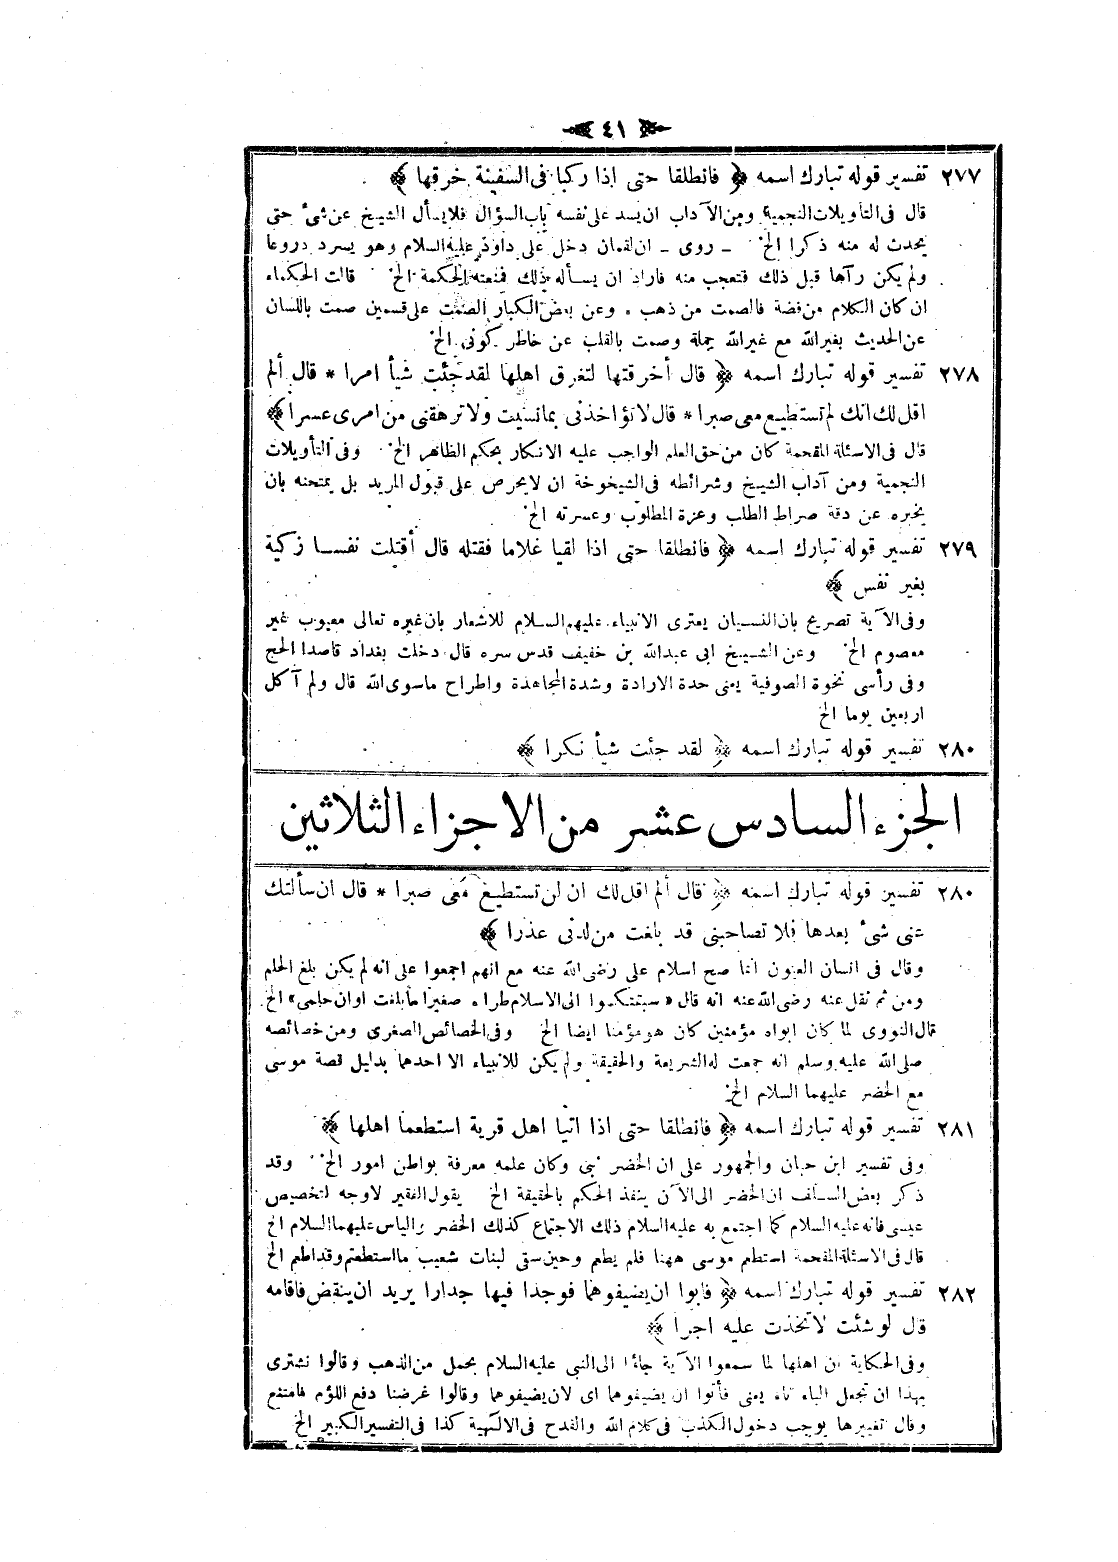 ٤١
٢٧٧ تفسير قوله تبارك اسمه ﴿ فانطلقا حتى اذا ركبا فى السفينة خرقها ﴾
قال فى التأويلات النجمية ومن الآداب ان يسد على نفسه باب السؤال فلا يسأل الشيخ عن شئ حتى
يحدث له منه ذكرا الخ ـ روى ـ ان لقمان دخل على داود عليه السلام وهو يسرد دروعا
ولم يكن رآها قبل ذلك فتعجب منه فاراد ان يسأله ذلك فمنعته الحكمة الخ قالت الحكماء
ان كان الكلام من فضة فالصمت من ذهب . وعن بعض الكبار الصمت على قسمين صمت باللسان
عن الحديث بغير الله مع غير الله جملة وصمت بالقلب عن خاطر كونى الخ
٢٧٨ تفسير قوله تبارك اسمه ﴿ قال أخرقتها لتغرق اهلها لقد جئت شيأ امرا * قال ألم
اقل لك انك لم تستطيع معى صبرا * قال لا تؤاخذنى بما نسيت ولا ترهقنى من امرى عسرا ﴾
قال فى الاسئلة المقحمة كان من حق العلم الواجب عليه الانكار بحكم الظاهر الخ وفى التأويلات
النجمية ومن آداب الشيخ وشرائطه فى الشيخوخة ان لا يحرص على قبول المريد بل يمتحنه بان
يخبره عن دقة صراط الطلب وعزة المطلوب وعسرته الخ
٢٧٩ تفسير قوله تبارك اسمه ﴿ فانطلقا حتى اذا لقيا غلاما فقتله قال أقتلت نفسا زكية
بغير نفس ﴾
وفى الآية تصريح بان النسيان يعترى الانبياء عليهم السلام للاشعار بان غيره تعالى معيوب غير
معصوم الخ وعن الشيخ ابى عبدالله بن خفيف قدس سره قال دخلت بغداد قاصدا الحج
وفى رأسى نخوة الصوفية يعنى حدة الارادة وشدة المجاهدة واطراح ماسوى الله قال ولم آكل
اربعين يوما الخ
٢٨٠ تفسير قوله تبارك اسمه ﴿ لقد جئت شيأ نكرا ﴾
الجزء السادس عشر من الاجزاء الثلاثين
٢٨٠ تفسير قوله تبارك اسمه ﴿ قال ألم اقل لك ان لن تستطيع معى صبرا * قال ان سألتك
عنى شئ بعدها فلا تصاحبنى قد بلغت من لدنى عذرا ﴾
وقال فى انسان العيون انما صح اسلام على رضى الله عنه مع انهم اجمعوا على انه لم يكن بلغ الحلم
ومن ثم نقل عنه رضى الله عنه انه قال « سبقتكموا الى الاسلام طراه صغيرا ما بلغت اوان حلمى » الخ
قال النووى لما كان ابواه مؤمنين كان هو مؤمنا ايضا الخ وفى الخصائص الصغرى ومن خصائصه
صلى الله عليه وسلم انه جمعت له الشريعة والحقيقة ولم يكن للانبياء الا احدهما بدليل قصة موسى
مع الخضر عليهما السلام الخ
٢٨١ تفسير قوله تبارك اسمه ﴿ فانطلقا حتى اذا اتيا اهل قرية استطعما اهلها ﴾
وفى تفسير ابن حبان والجمهور على ان الخضر نبى وكان علمه معرفة بواطن امور الخ وقد
ذكر بعض السلف ان الخضر الى الآن ينفذ الحكم بالحقيقة الخ يقول الفقير لاوجه لتخصيص
عيسى فانه عليه السلام كما اجتمع به عليه السلام ذلك الاجتماع كذلك الخضر والياس عليهما السلام الخ
قال فى الاسئلة المقحمة استطعم موسى ههنا فلم يطعم وحين سقى لبنات شعيب ما استطعم وقد اطعم الخ
٢٨٢ تفسير قوله تبارك اسمه ﴿ فابوا ان يضيفوهما فوجدا فيها جدارا يريد ان ينقض فاقامه
قال لو شئت لاتخذت عليه اجرا ﴾
وفى الحكاية ان اهلها لما سمعوا الآية جاؤا الى النبى عليه السلام بحمل من الذهب وقالوا نشترى
بهذا ان تجعل الباء تاء يعنى فأتوا ان يضيفوهما اى لان يضيفوهما وقالوا غرضنا دفع اللؤم فامتنع
وقال تغييرها يوجب دخول الكذب فى كلام الله والقدح فى الالهية كذا فى التفسير الكبير الخ